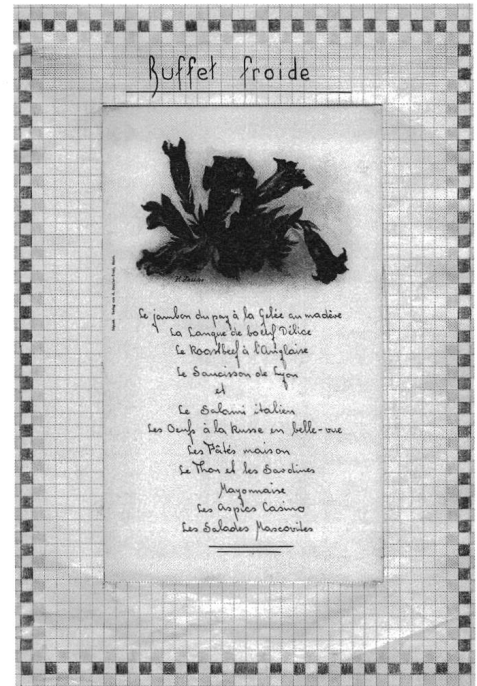 Buffet froide
Le jambon du pay à la Gelée au madère
La Langue de boeuf Délice
Le Roastbeef à l'Anglaise
Le Saucisson de Lyon
et
Le Salami italien
Les Oeufs à la Russe en belle-vue
Les Pâtés maison
Le Thon et les Sardines
Mayonnaise
Les Aspics Casino
Les Salades Moscovites